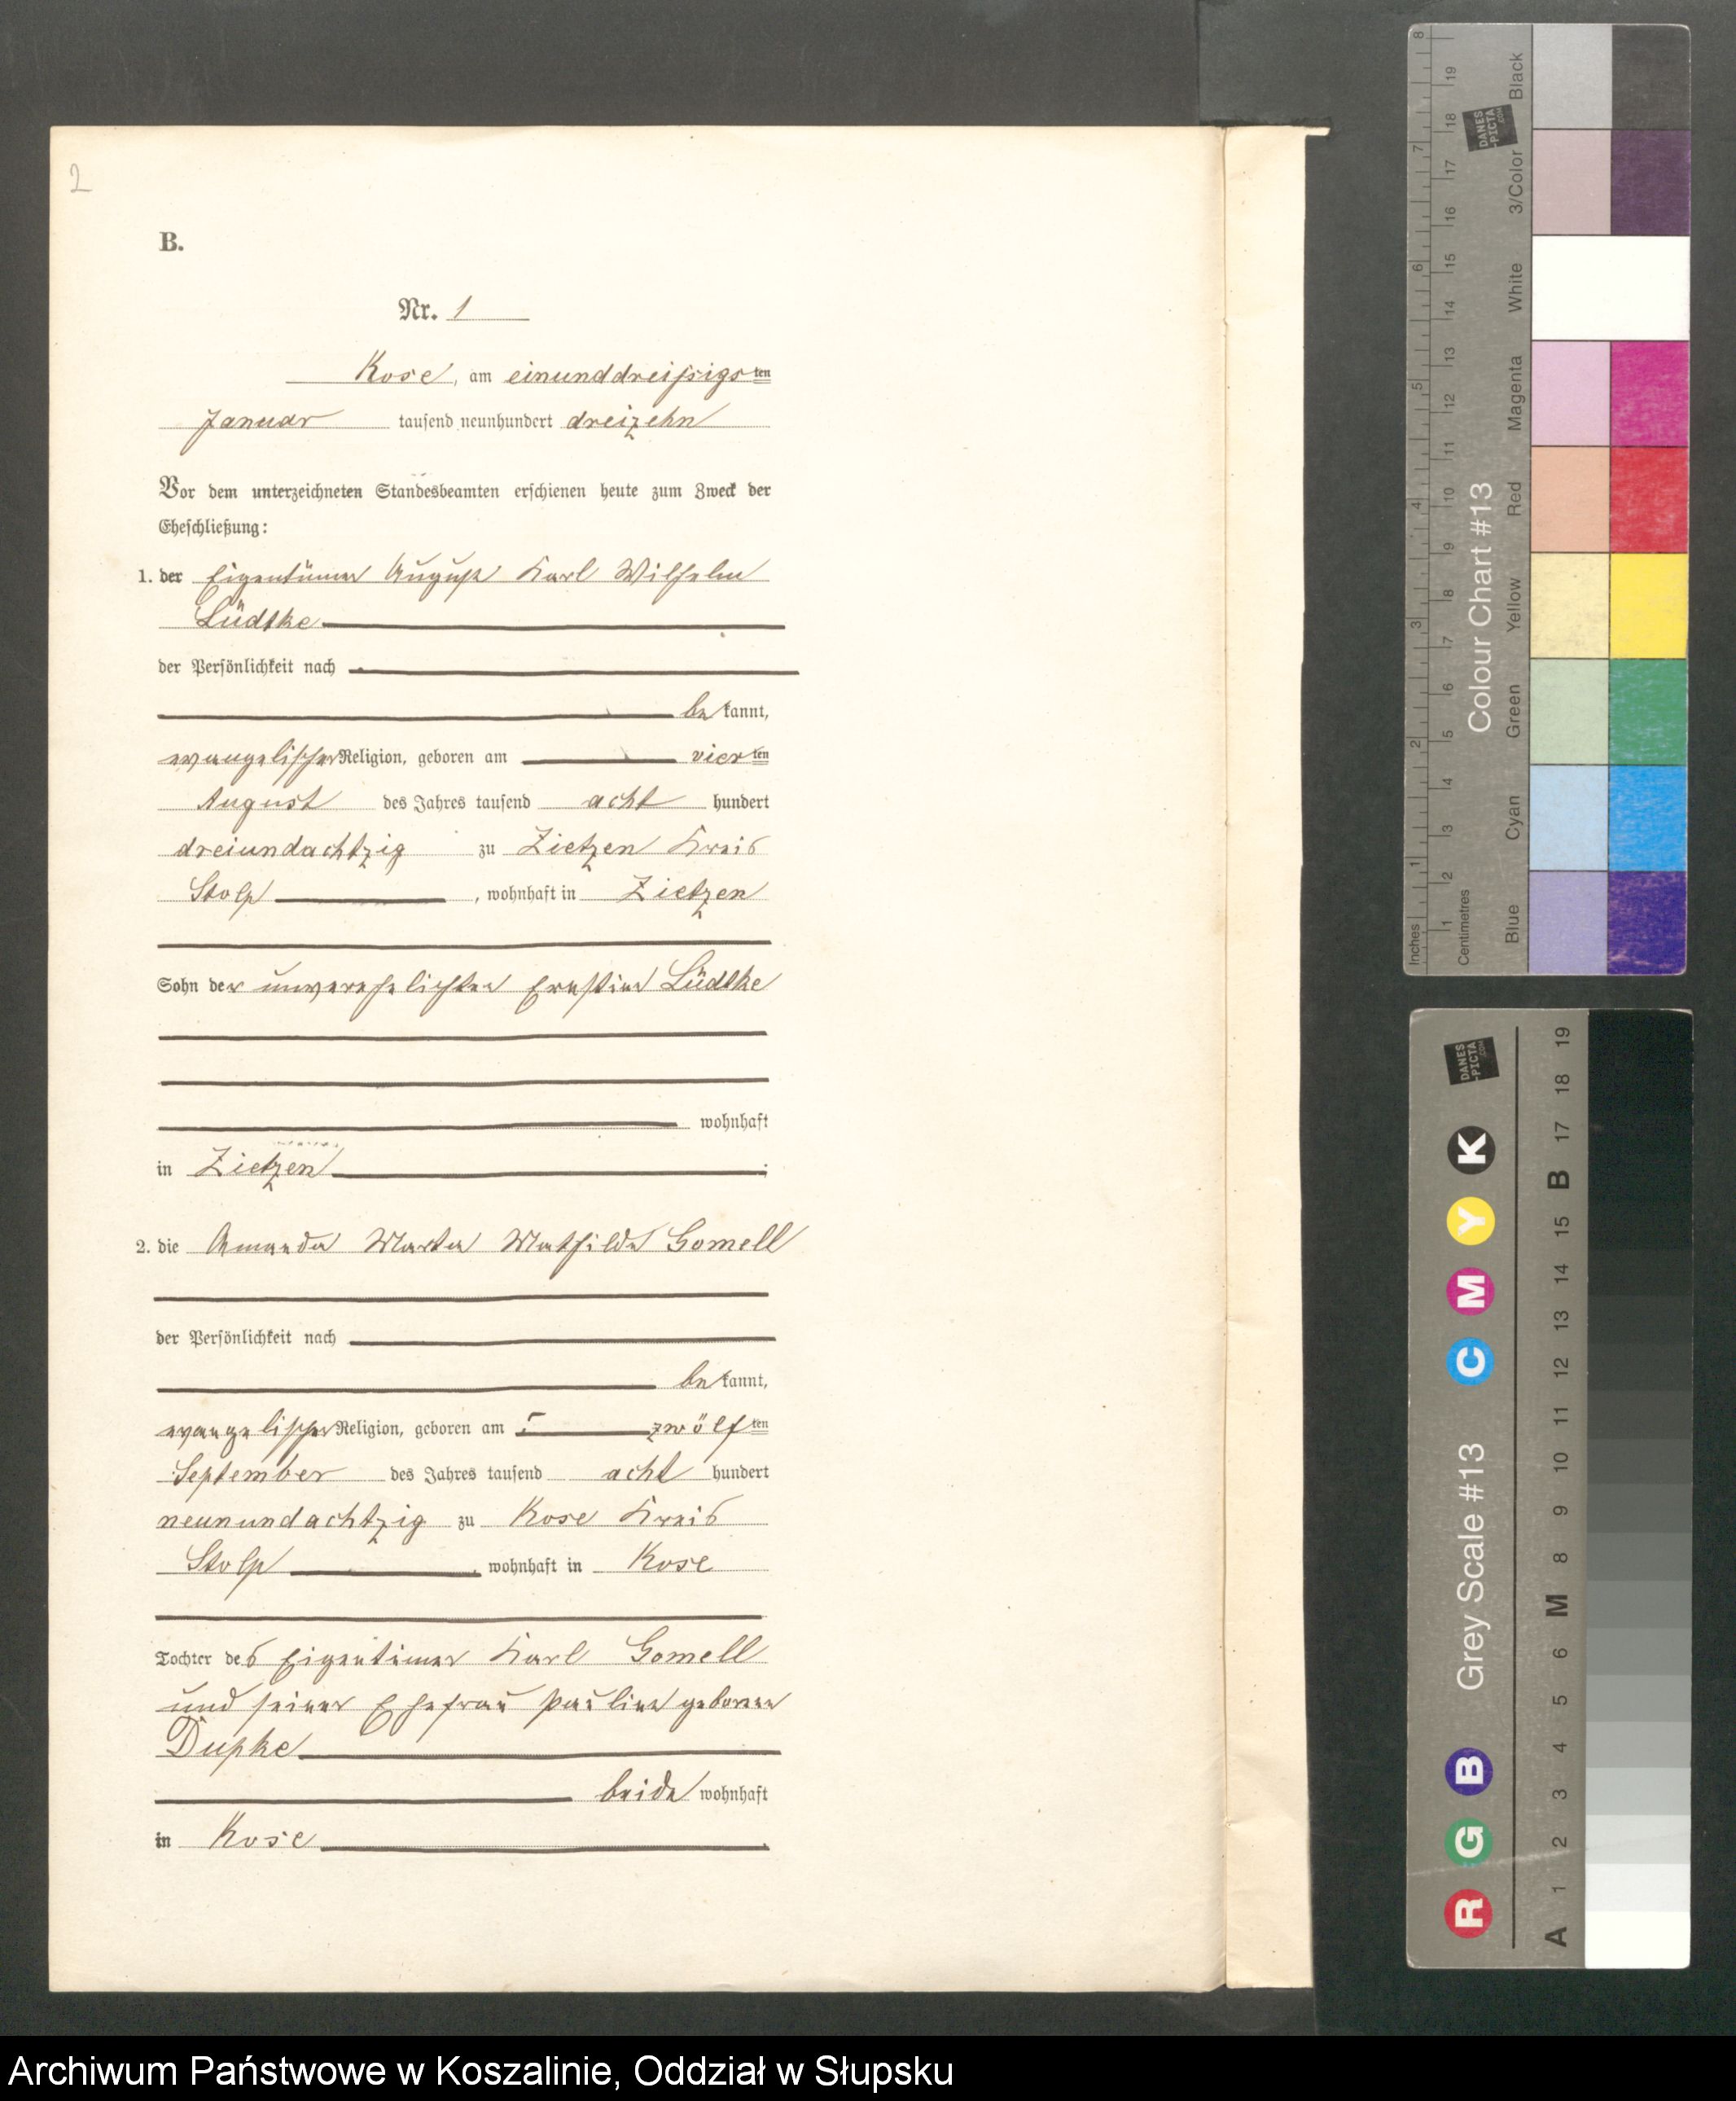 2
B.
Nr. 1
Kose, am einunddreißigsten
Januar tausend neunhundert dreizehn
Vor dem unterzeichneten Standesbeamten erschienen heute zum Zweck der
Eheschließung:
1. der Eigentümer August Karl Wilhelm
Lüdtke
der Persönlichkeit nach
be kannt,
evangelischer Religion, geboren am vierten
August des Jahres tausend acht hundert
dreiundachtzig zu Zietzen Kreis
Stolp, wohnhaft in Zietzen
Sohn der unverehelichten Ernstine Lüdtke
wohnhaft
in Zietzen ;
2. die Amanda Marta Mathilde Gomell
der Persönlichkeit nach
be kannt,
evangelischer Religion, geboren am zwölften
September des Jahres tausend acht hundert
neunundachtzig zu Kose Kreis
Stolp, wohnhaft in Kose
Tochter des Eigentümer Karl Gomell
und seiner Ehefrau Pauline geborene
Dupke
beide wohnhaft
in Kose.
Inches 1 2 3 4 5 6 7 8
Centimetres 1 2 3 4 5 6 7 8 9 10 11 12 13 14 15 16 17 18 19
Colour Chart #13
Blue Cyan Green Yellow Red Magenta White 3/Color Black
DANES-PICTA.COM
Grey Scale #13
R G B C M Y K
A 1 2 3 4 5 6 M 8 9 10 11 12 13 14 15 B 17 18 19
DANES-PICTA.COM
Archiwum Państwowe w Koszalinie, Oddział w Słupsku